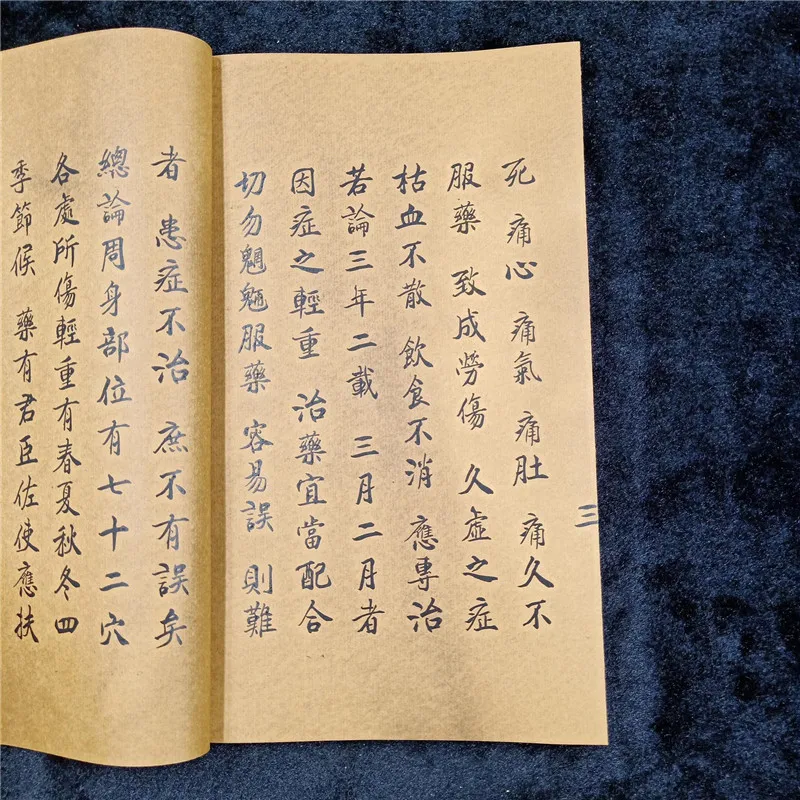 三
死 痛心 痛氣 痛肚 痛久不
服藥 致成勞傷 久虛之症
枯血不散 飲食不消 應專治
若論三年二載 三月二月者
因症之輕重 治藥宜當配合
切勿魍魎服藥 容易誤 則難
者 患症不治 庶不有誤矣
總論周身部位有七十二穴
各處所傷輕重有春夏秋冬四
季節候 藥有君臣佐使應扶